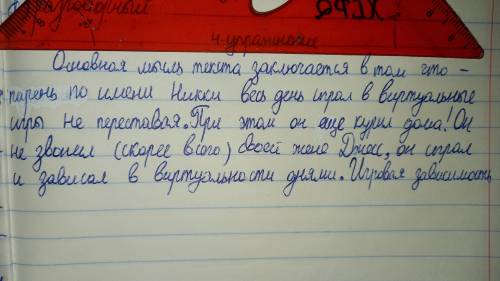 4-упражнение
Основная мысль текста заключается в том что -
парень по имени Никки весь день играл в виртуальные
игры не переставая. При этом он еще курил дома! Он
не звонил (скорее всего) своей жене Джесс, он играл
и зависал в виртуальности днями. Игровая зависимость